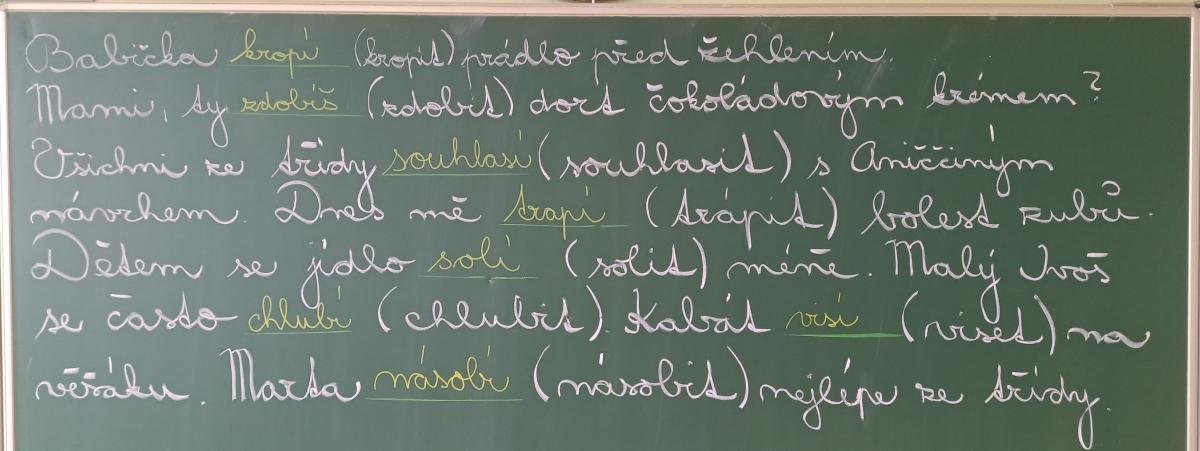 Babička kropí (kropit) prádlo před žehlením.
Mami, ty zdobíš (zdobit) dort čokoládovým krémem?
Všichni ze třídy souhlasí (souhlasit) s Aniččiným
návrhem. Dnes mě trápí (trápit) bolest zubů.
Dětem se jídlo solí (solit) méně. Malý Ivoš
se často chlubí (chlubit). Kabát visí (viset) na
věšáku. Marta násobí (násobit) nejlépe ze třídy.